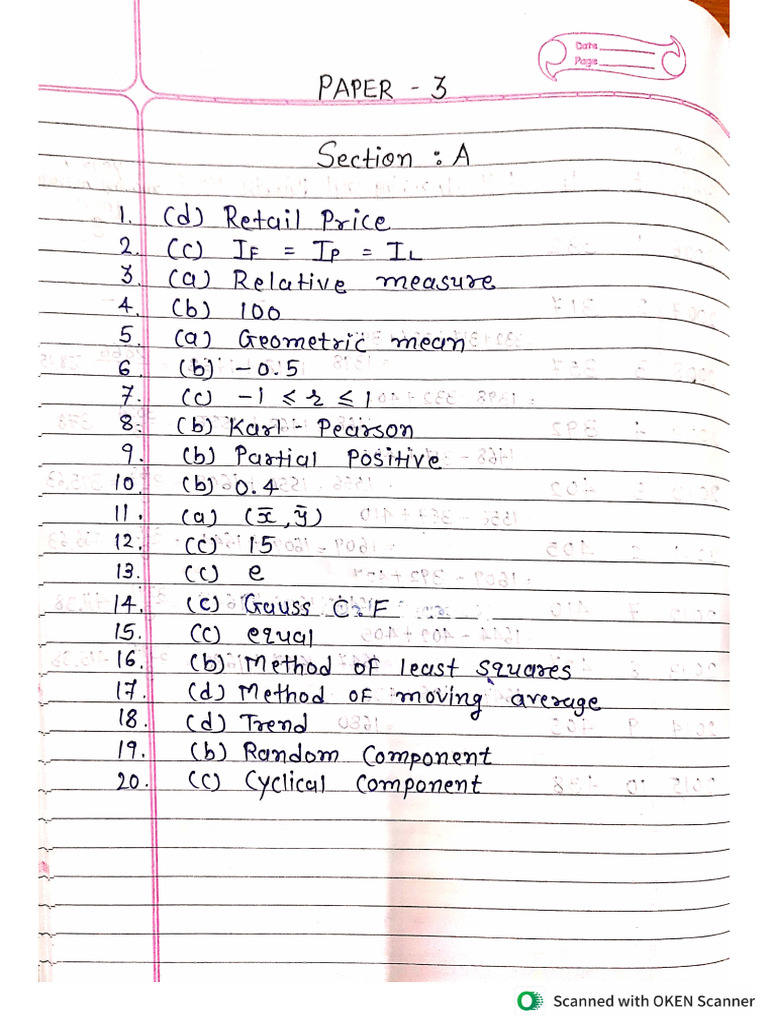 Date
Page
PAPER - 3
Section : A
1. (d) Retail Price
2. (c) IF = IP = IL
3. (a) Relative measure
4. (b) 100
5. (a) Geometric mean
6. (b) -0.5
7. (c) -1 ≤ r ≤ 1
8. (b) Karl - Pearson
9. (b) Partial Positive
10. (b) 0.4
11. (a) (x̄, ȳ)
12. (c) 15
13. (c) e
14. (c) Gauss C.F
15. (c) equal
16. (b) Method of least squares
17. (d) Method of moving average
18. (d) Trend
19. (b) Random Component
20. (c) Cyclical Component
Scanned with OKEN Scanner